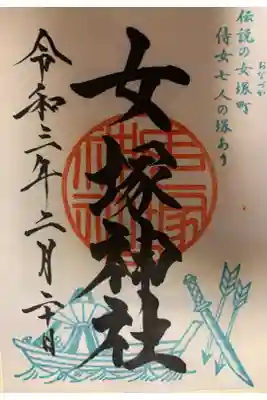 伝説の女塚町
おなづか
侍女七人の塚あり
女塚神社
令和三年二月二十日